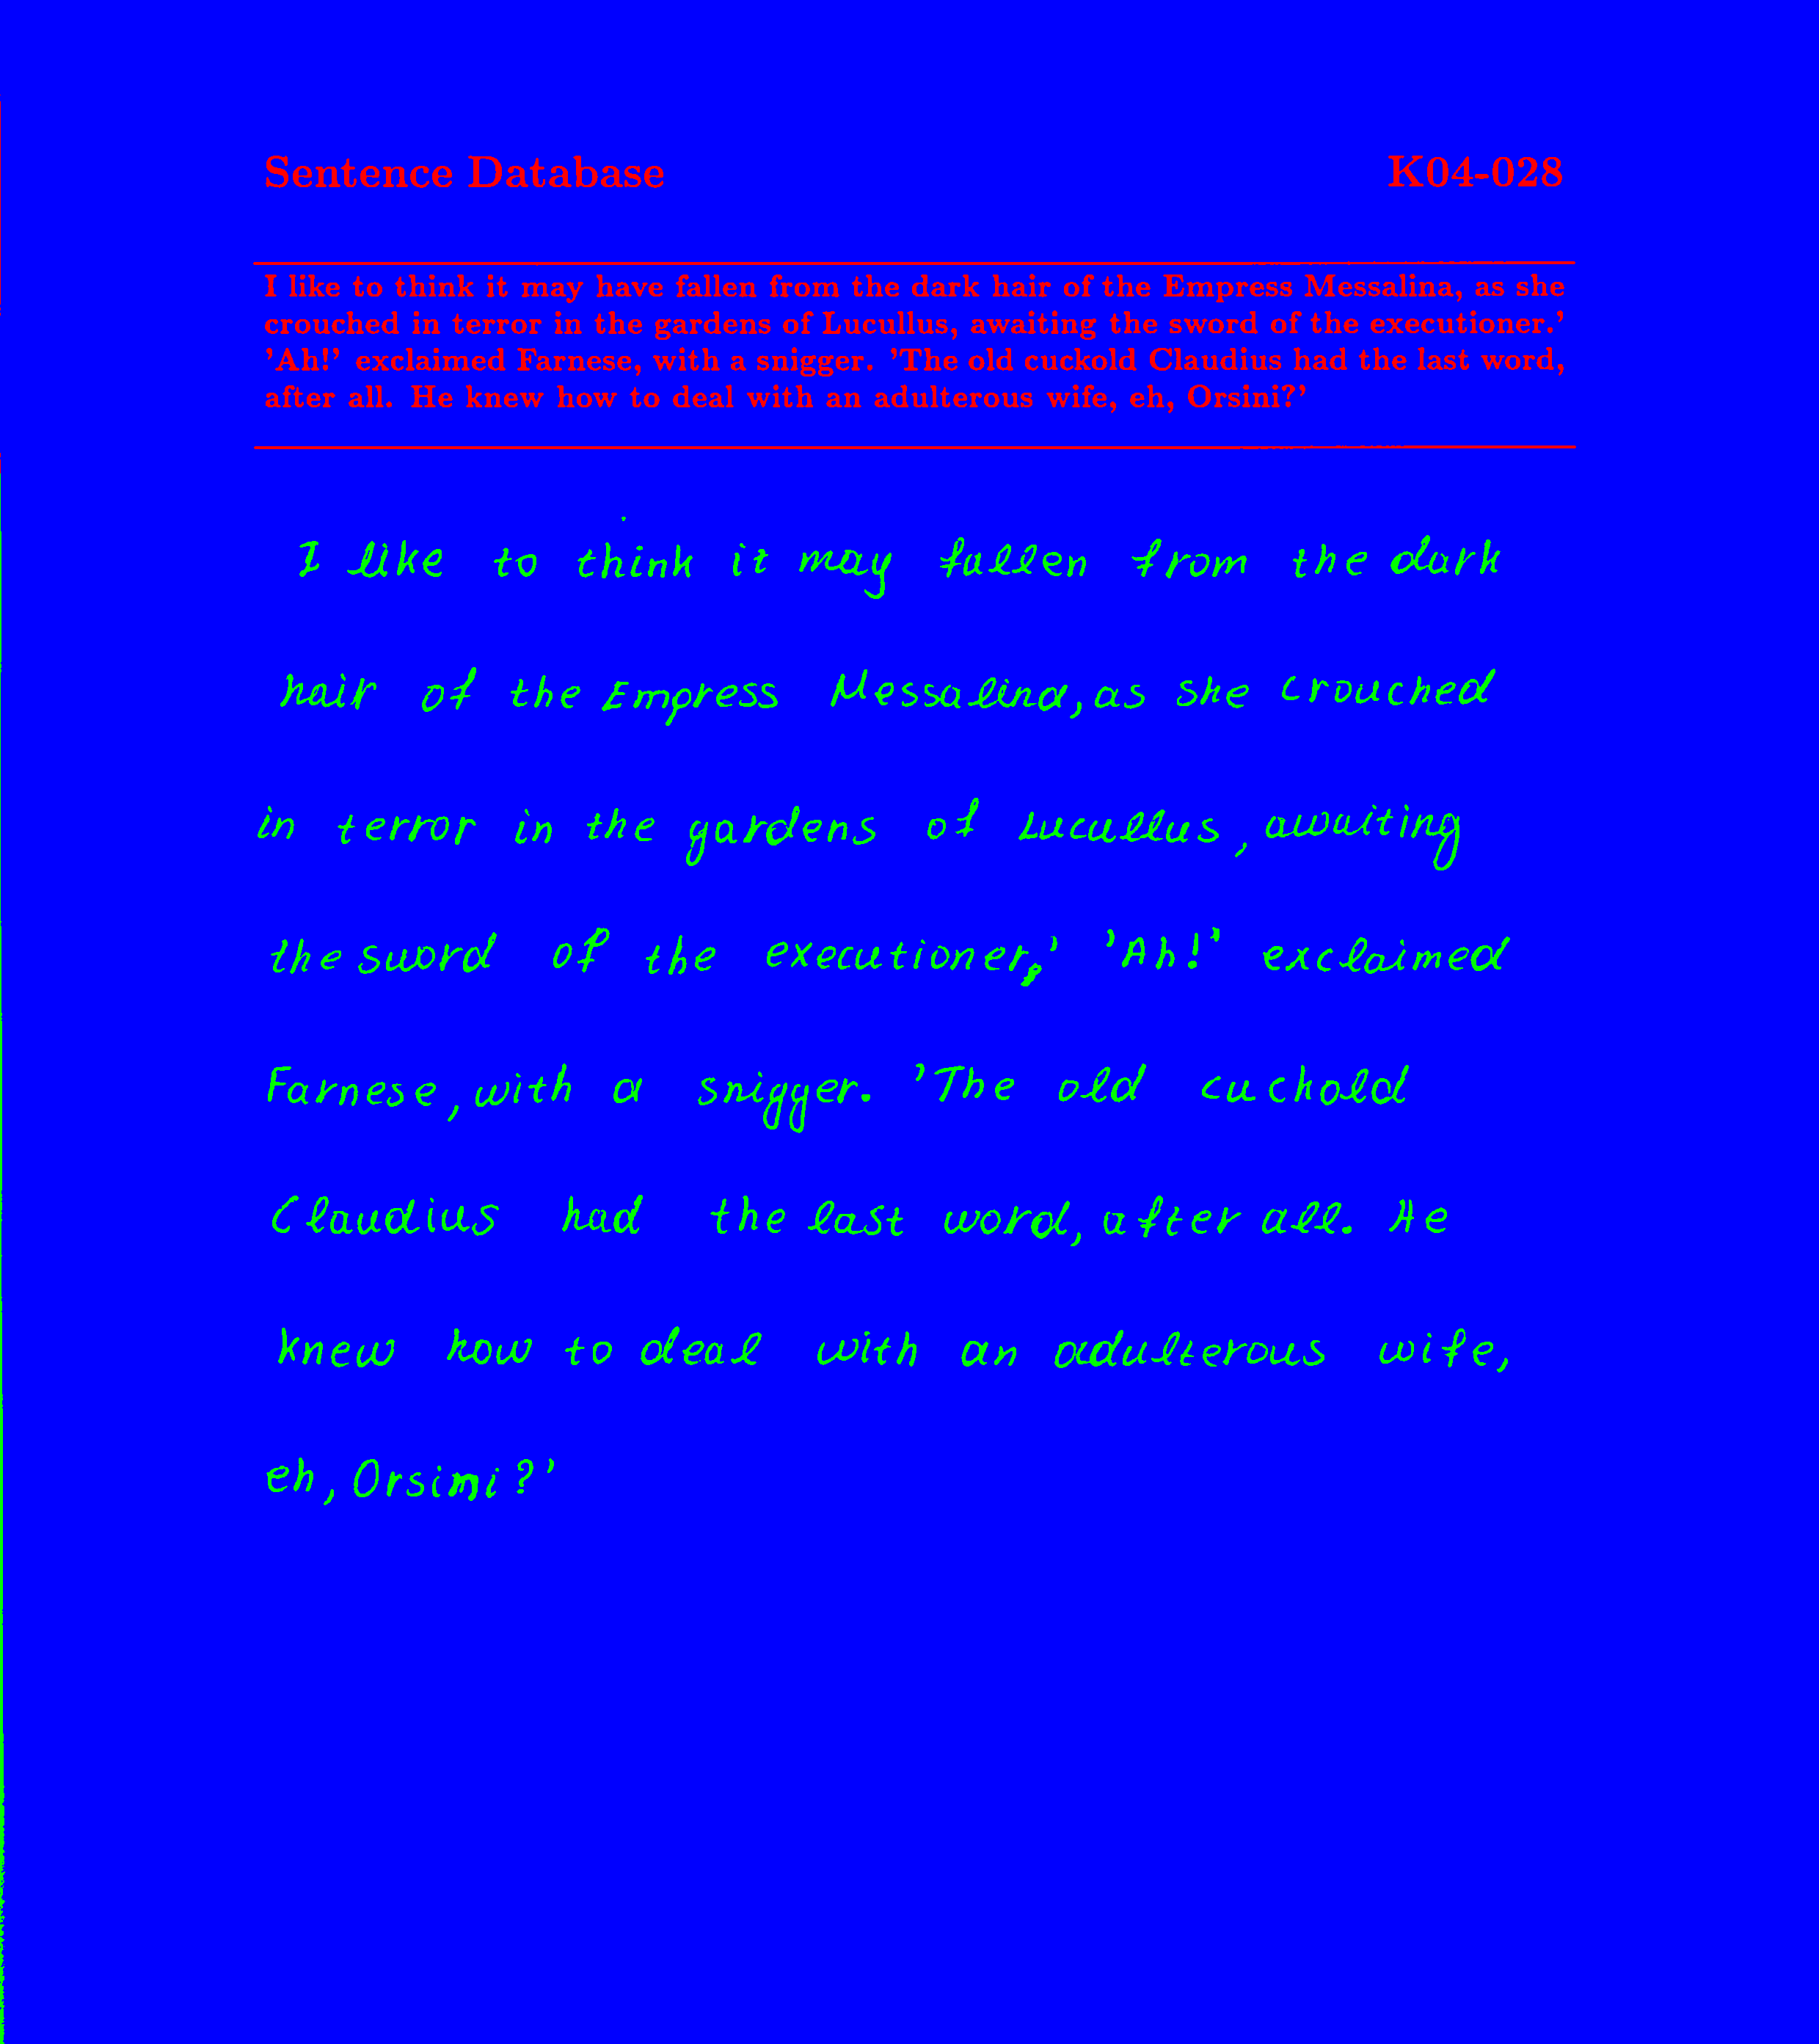 Sentence Database K04-028
I like to think it may have fallen from the dark hair of the Empress Messalina, as she
crouched in terror in the gardens of Lucullus, awaiting the sword of the executioner.'
'Ah!' exclaimed Farnese, with a snigger. 'The old cuckold Claudius had the last word,
after all. He knew how to deal with an adulterous wife, eh, Orsini?'
I like to think it may fallen from the dark
hair of the Empress Messalina, as she crouched
in terror in the gardens of Lucullus, awaiting
the sword of the executioner,' 'Ah!' exclaimed
Farnese, with a snigger. 'The old cuckold
Claudius had the last word, after all. He
knew how to deal with an adulterous wife,
eh, Orsini?'